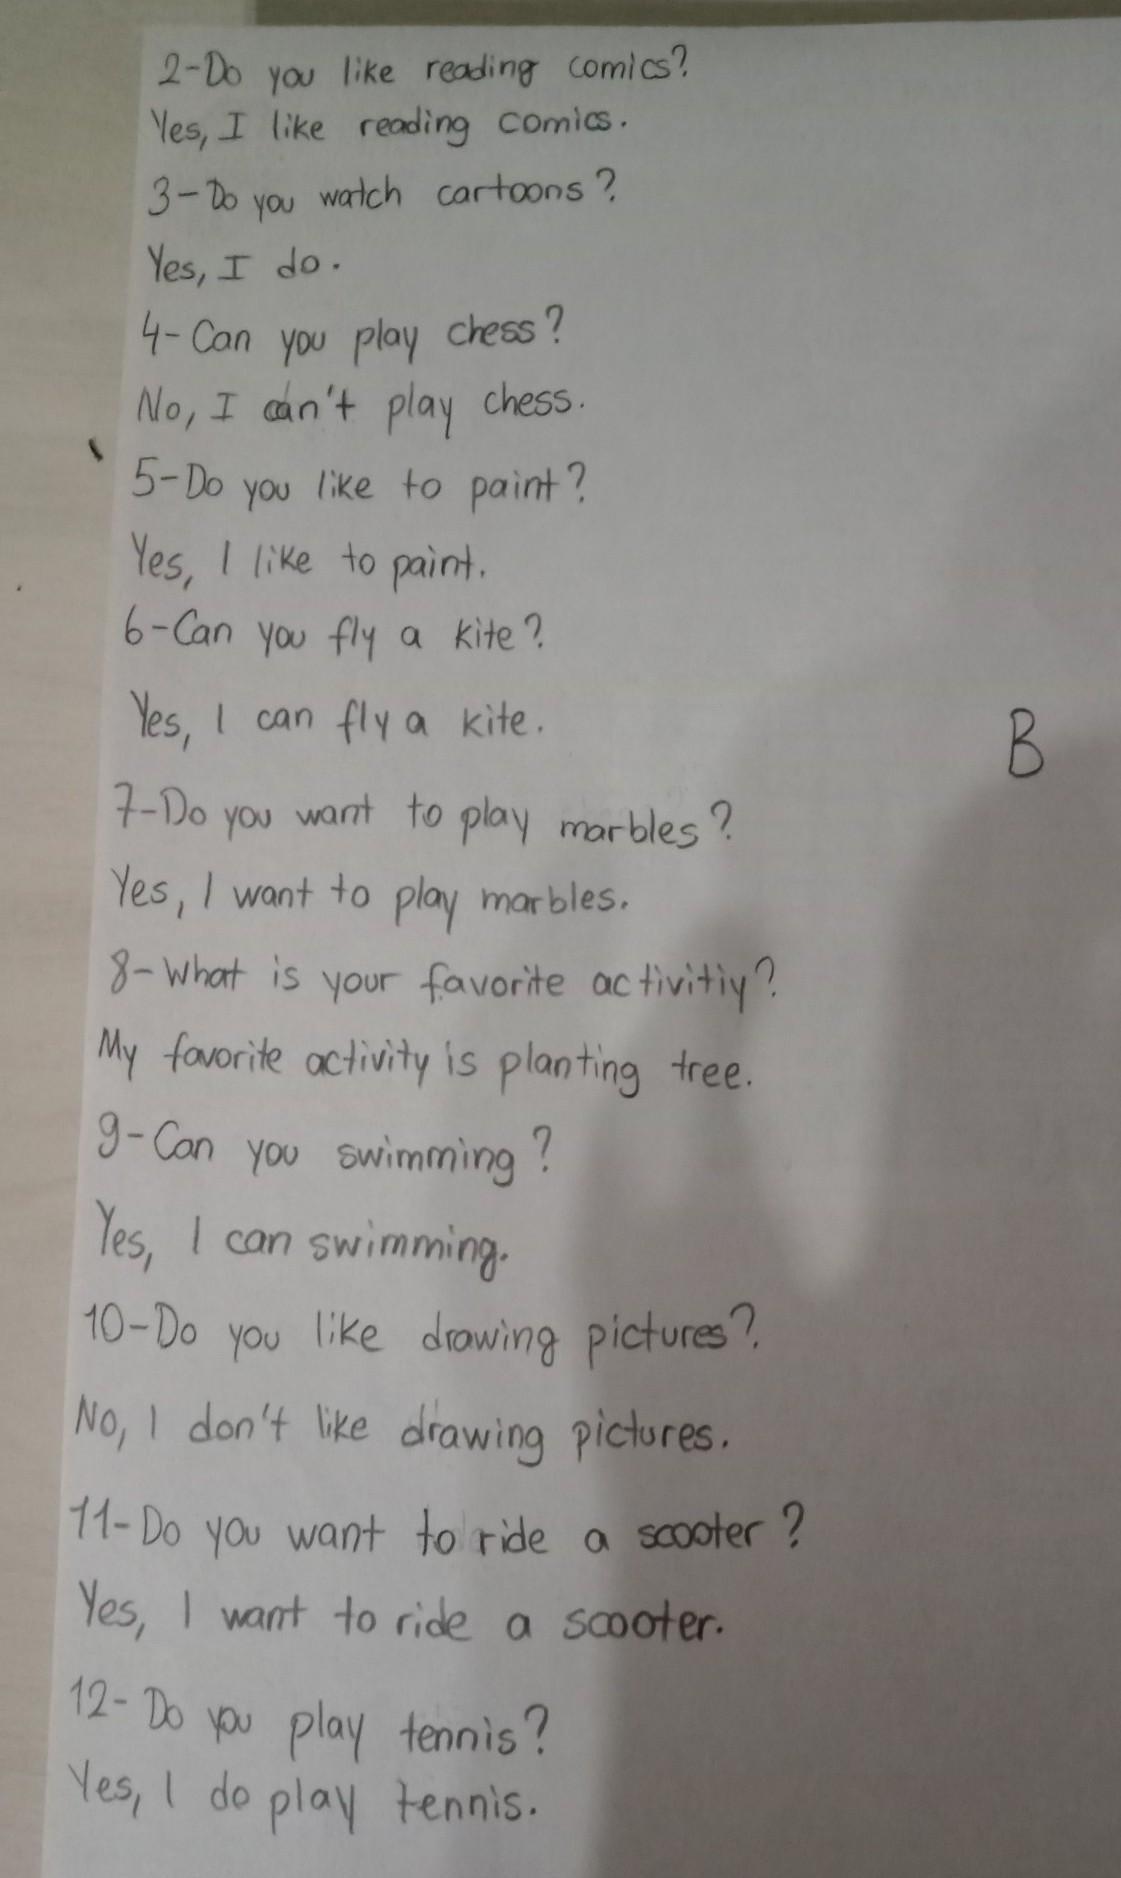 2-Do you like reading comics?
Yes, I like reading comics.
3-Do you watch cartoons?
Yes, I do.
4-Can you play chess?
No, I can't play chess.
5-Do you like to paint?
Yes, I like to paint.
6-Can you fly a kite?
Yes, I can fly a kite.
B
7-Do you want to play marbles?
Yes, I want to play marbles.
8-What is your favorite activitiy?
My favorite activity is planting tree.
9-Can you swimming?
Yes, I can swimming.
10-Do you like drawing pictures?
No, I don't like drawing pictures.
11-Do you want to ride a scooter?
Yes, I want to ride a scooter.
12-Do you play tennis?
Yes, I do play tennis.